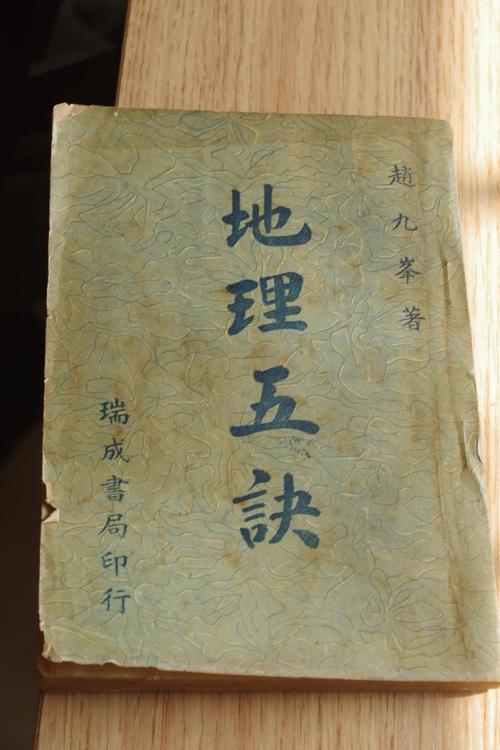 趙九峯著
地理五訣
瑞成書局印行